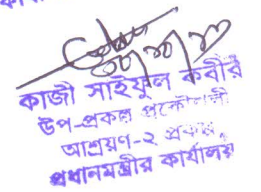 কাজী সাইফুল কবীর
উপ-প্রকল্প প্রকৌশলী
আশ্রয়ণ-২ প্রকল্প,
প্রধানমন্ত্রীর কার্যালয়